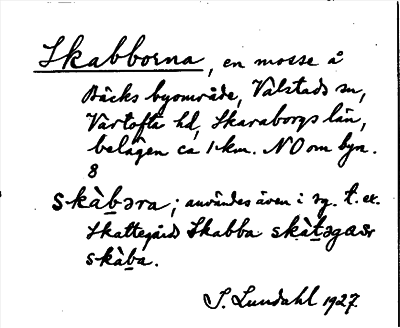 Skabborna, en mosse å
Bäcks byområde, Valstads sn,
Vartofta hd, Skaraborgs län,
belägen ca 1 km. NO om byn.
8
skàb̠əra; användes även i sg. t. ex.
Skattegårds Skabba skàt̠əgasr
skàb̠a.
S. Lundahl 1927.